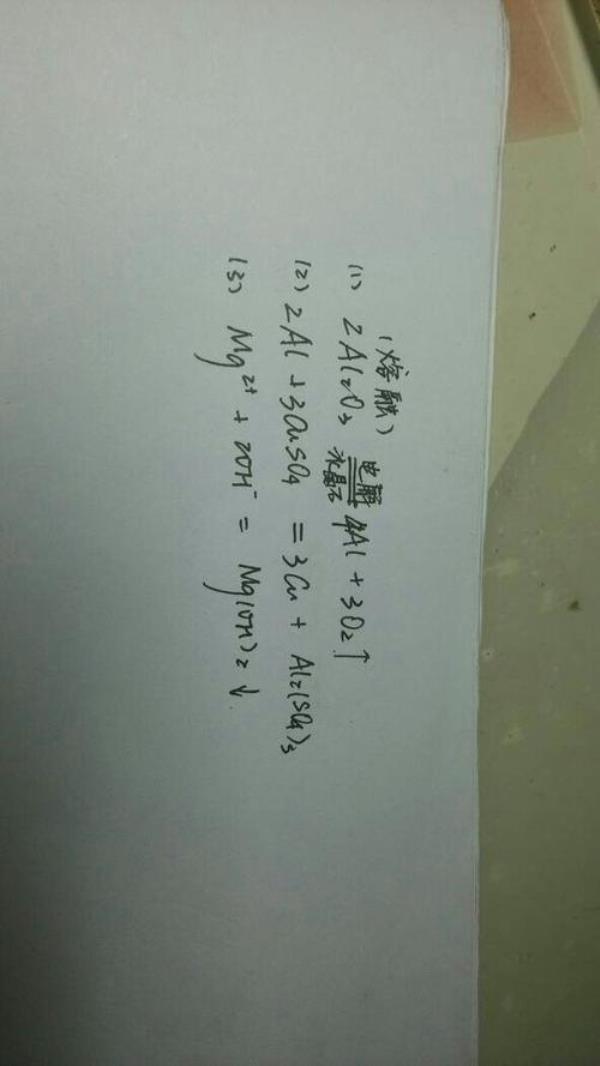 (1) 2Al2O3(熔融) 电解 冰晶石 4Al + 3O2↑
(2) 2Al + 3CuSO4 = 3Cu + Al2(SO4)3
(3) Mg2+ + 2OH- = Mg(OH)2↓